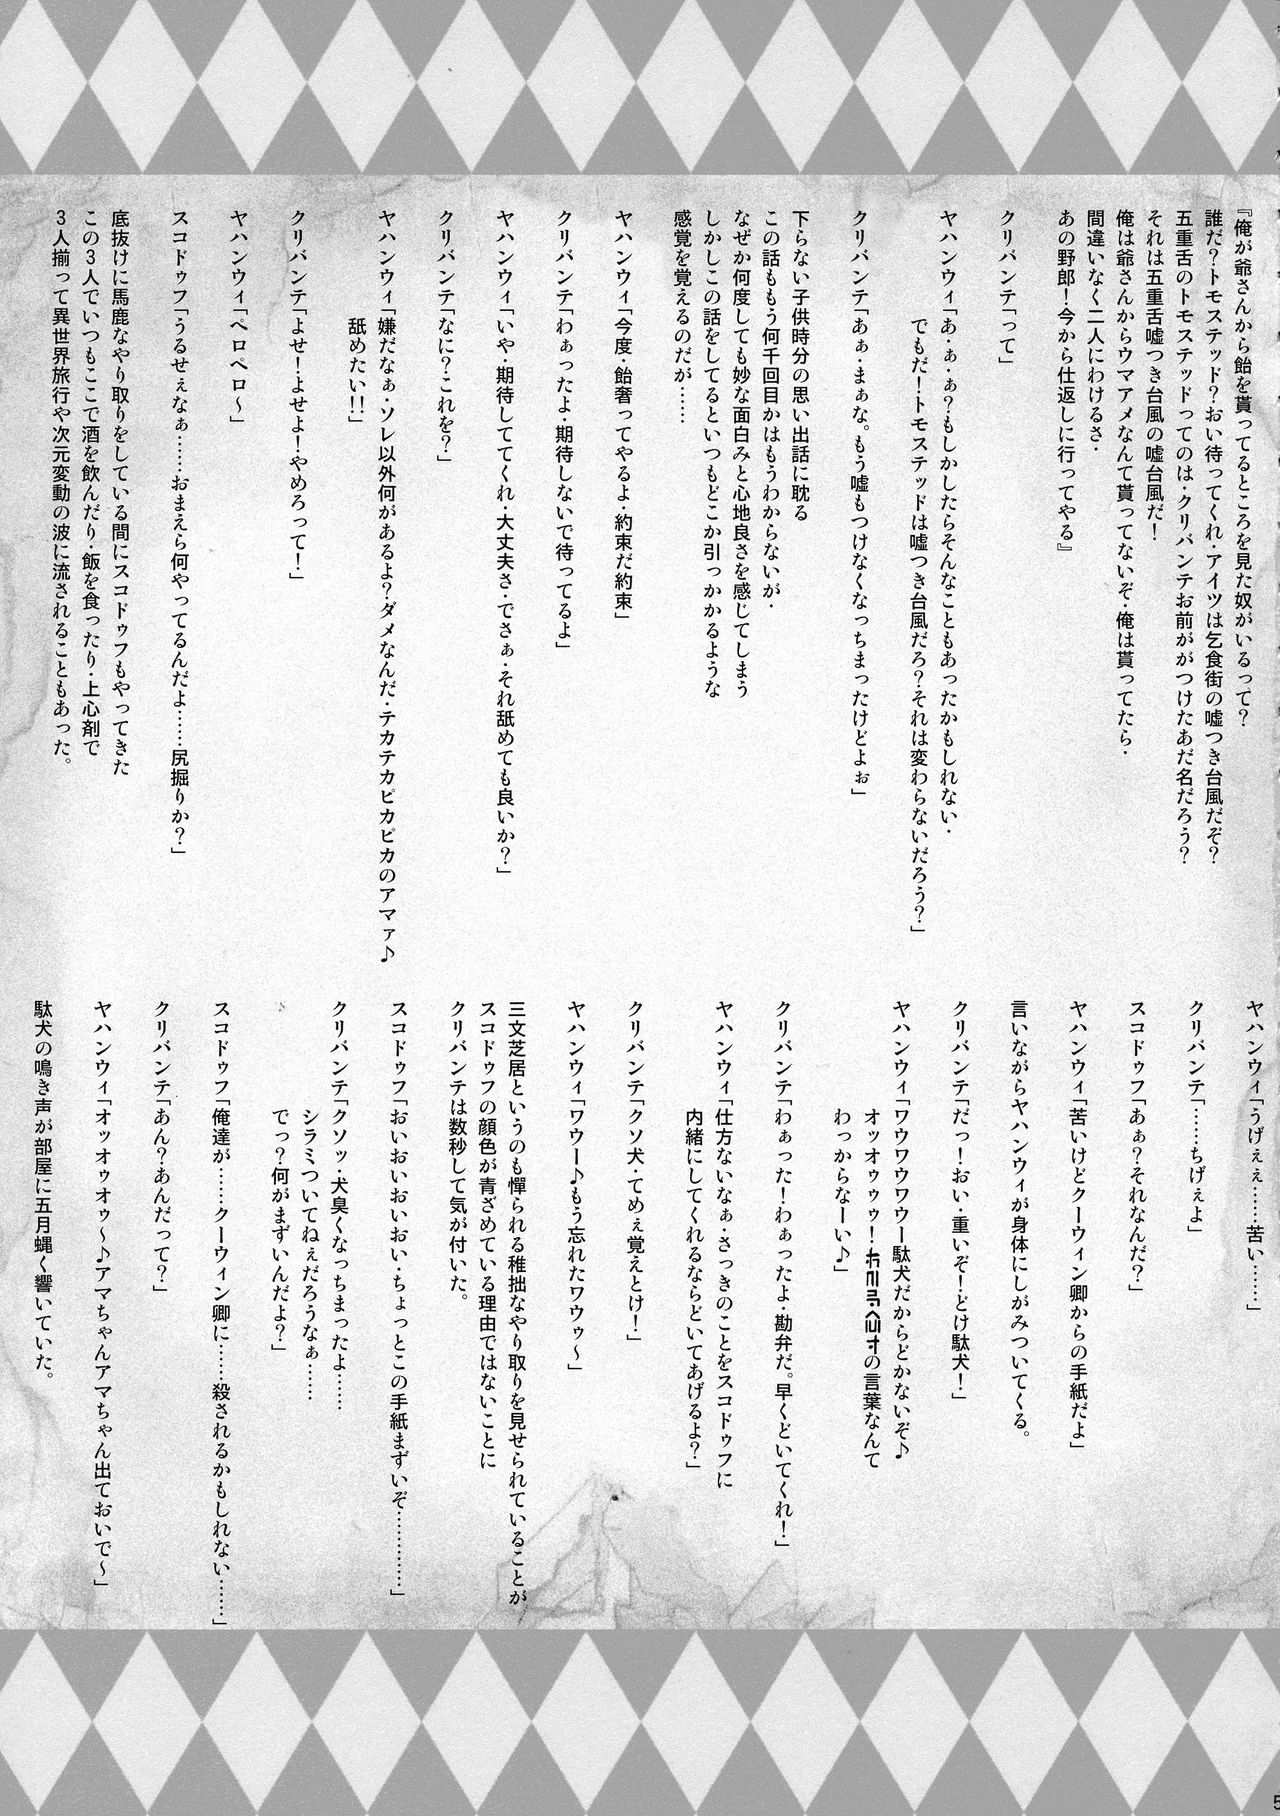 『俺が爺さんから飴を貰ってるところを見た奴がいるって？
誰だ？トモステッド？おい待ってくれ・アイツは乞食街の嘘つき台風だぞ？
五重舌のトモステッドってのは・クリバンテお前ががつけたあだ名だろう？
それは五重舌嘘つき台風の嘘台風だ！
俺は爺さんからウマアメなんて貰ってないぞ・俺は貰ってたら・
間違いなく二人にわけるさ・
あの野郎！今から仕返しに行ってやる』
クリバンテ「って」
ヤハンウィ「あ・ぁ・ぁ？もしかしたらそんなこともあったかもしれない・
でもだ！トモステッドは嘘つき台風だろ？それは変わらないだろう？」
クリバンテ「あぁ・まぁな。もう嘘もつけなくなっちまったけどよぉ」
下らない子供時分の思い出話に耽る
この話ももう何千回目かはもうわからないが・
なぜか何度しても妙な面白みと心地良さを感じてしまう
しかしこの話をしてるといつもどこか引っかかるような
感覚を覚えるのだが……
ヤハンウィ「今度・飴奢ってやるよ・約束だ約束」
クリバンテ「わぁったよ・期待しないで待ってるよ」
ヤハンウィ「いや・期待しててくれ・大丈夫さ・でさぁ・それ舐めても良いか？」
クリバンテ「なに？これを？」
ヤハンウィ「嫌だなぁ・ソレ以外何があるよ？ダメなんだ・テカテカピカピカのアマァ♪
舐めたい!!」
クリバンテ「よせ！よせよ！やめろって！」
ヤハンウィ「ペロペロ～」
スコドゥフ「うるせぇなぁ……おまえら何やってるんだよ……尻掘りか？」
底抜けに馬鹿なやり取りをしている間にスコドゥフもやってきた
この3人でいつもここで酒を飲んだり・飯を食ったり・上心剤で
3人揃って異世界旅行や次元変動の波に流されることもあった。
ヤハンウィ「うげぇぇ……苦い……」
クリバンテ「……ちげぇよ」
スコドゥフ「あぁ？それなんだ？」
ヤハンウィ「苦いけどクーウィン卿からの手紙だよ」
言いながらヤハンウィが身体にしがみついてくる。
クリバンテ「だっ！おい・重いぞ！どけ駄犬！」
ヤハンウィ「ワウワウワウワウー駄犬だからどかないぞ♪
オッオゥゥゥ！の言葉なんて
わっからなーい♪」
クリバンテ「わぁった！わぁったよ・勘弁だ。早くどいてくれ！」
ヤハンウィ「仕方ないなぁ・さっきのことをスコドゥフに
内緒にしてくれるならどいてあげるよ？」
クリバンテ「クソ犬・てめぇ覚えとけ！」
ヤハンウィ「ワウー♪もう忘れたワウゥ～」
三文芝居というのも憚られる稚拙なやり取りを見せられていることが
スコドゥフの顔色が青ざめている理由ではないことに
クリバンテは数秒して気が付いた。
スコドゥフ「おいおいおいおい・ちょっとこの手紙まずいぞ…………」
クリバンテ「クソッ・犬臭くなっちまったよ……
シラミついてねぇだろうなぁ……
でっ？何がまずいんだよ？」
スコドゥフ「俺達が……クーウィン卿に……殺されるかもしれない……」
クリバンテ「あん？あんだって？」
ヤハンウィ「オッオゥオゥ～♪アマちゃんアマちゃん出ておいで～」
駄犬の鳴き声が部屋に五月蝿く響いていた。
5